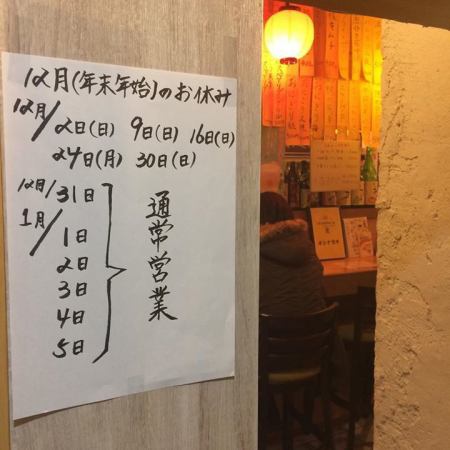 12月(年末年始)のお休み
12月/2日(日) 9日(日) 16日(日)
24日(月) 30日(日)
12月/31日
1月/1日
2日
3日
4日
5日
通常営業